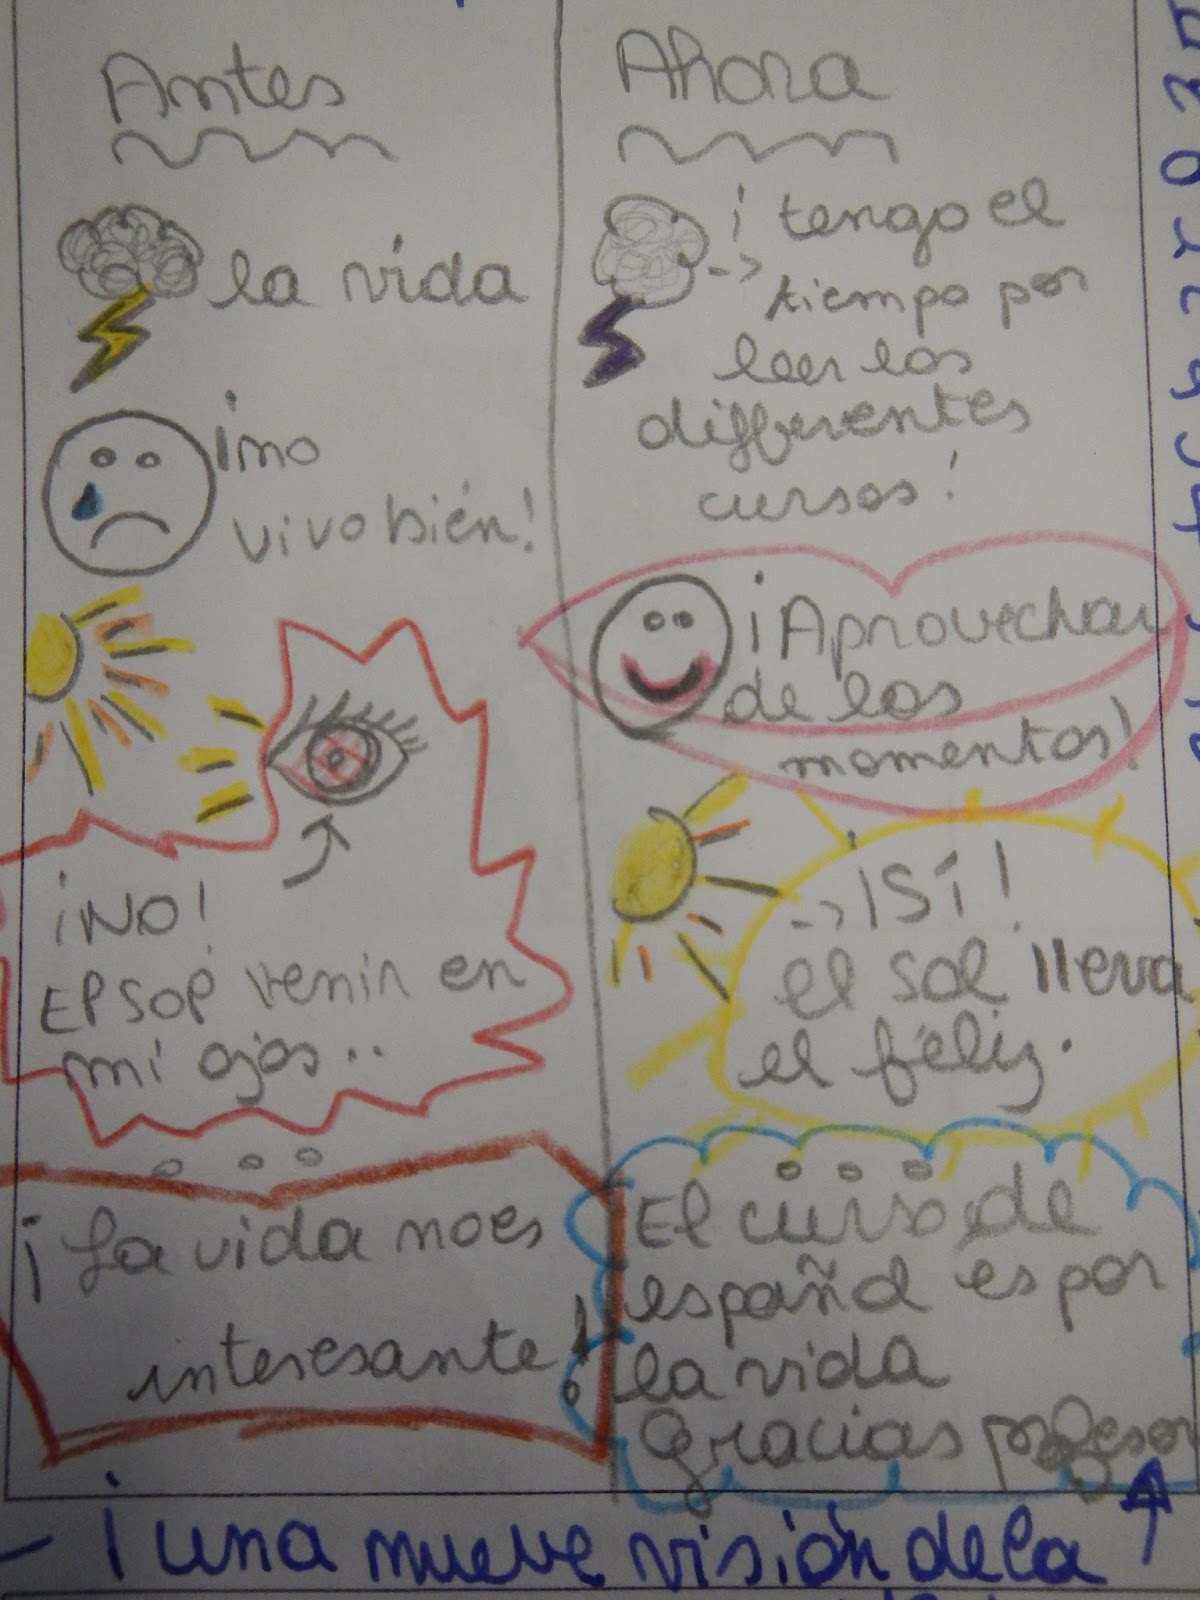 Antes
la vida
¡no
vivo bién!
¡NO!
El sol venir en
mi ojos..
¡La vida no es
interesante!
Ahora
-> ¡tengo el
tiempo por
leer los
differentes
cursos!
¡Aprovechar
de los
momentos!
-> ¡Sí!
el sol lleva
el féliz.
El curso de
español es por
la vida
Gracias profesor
- ¡una nueve visión de la